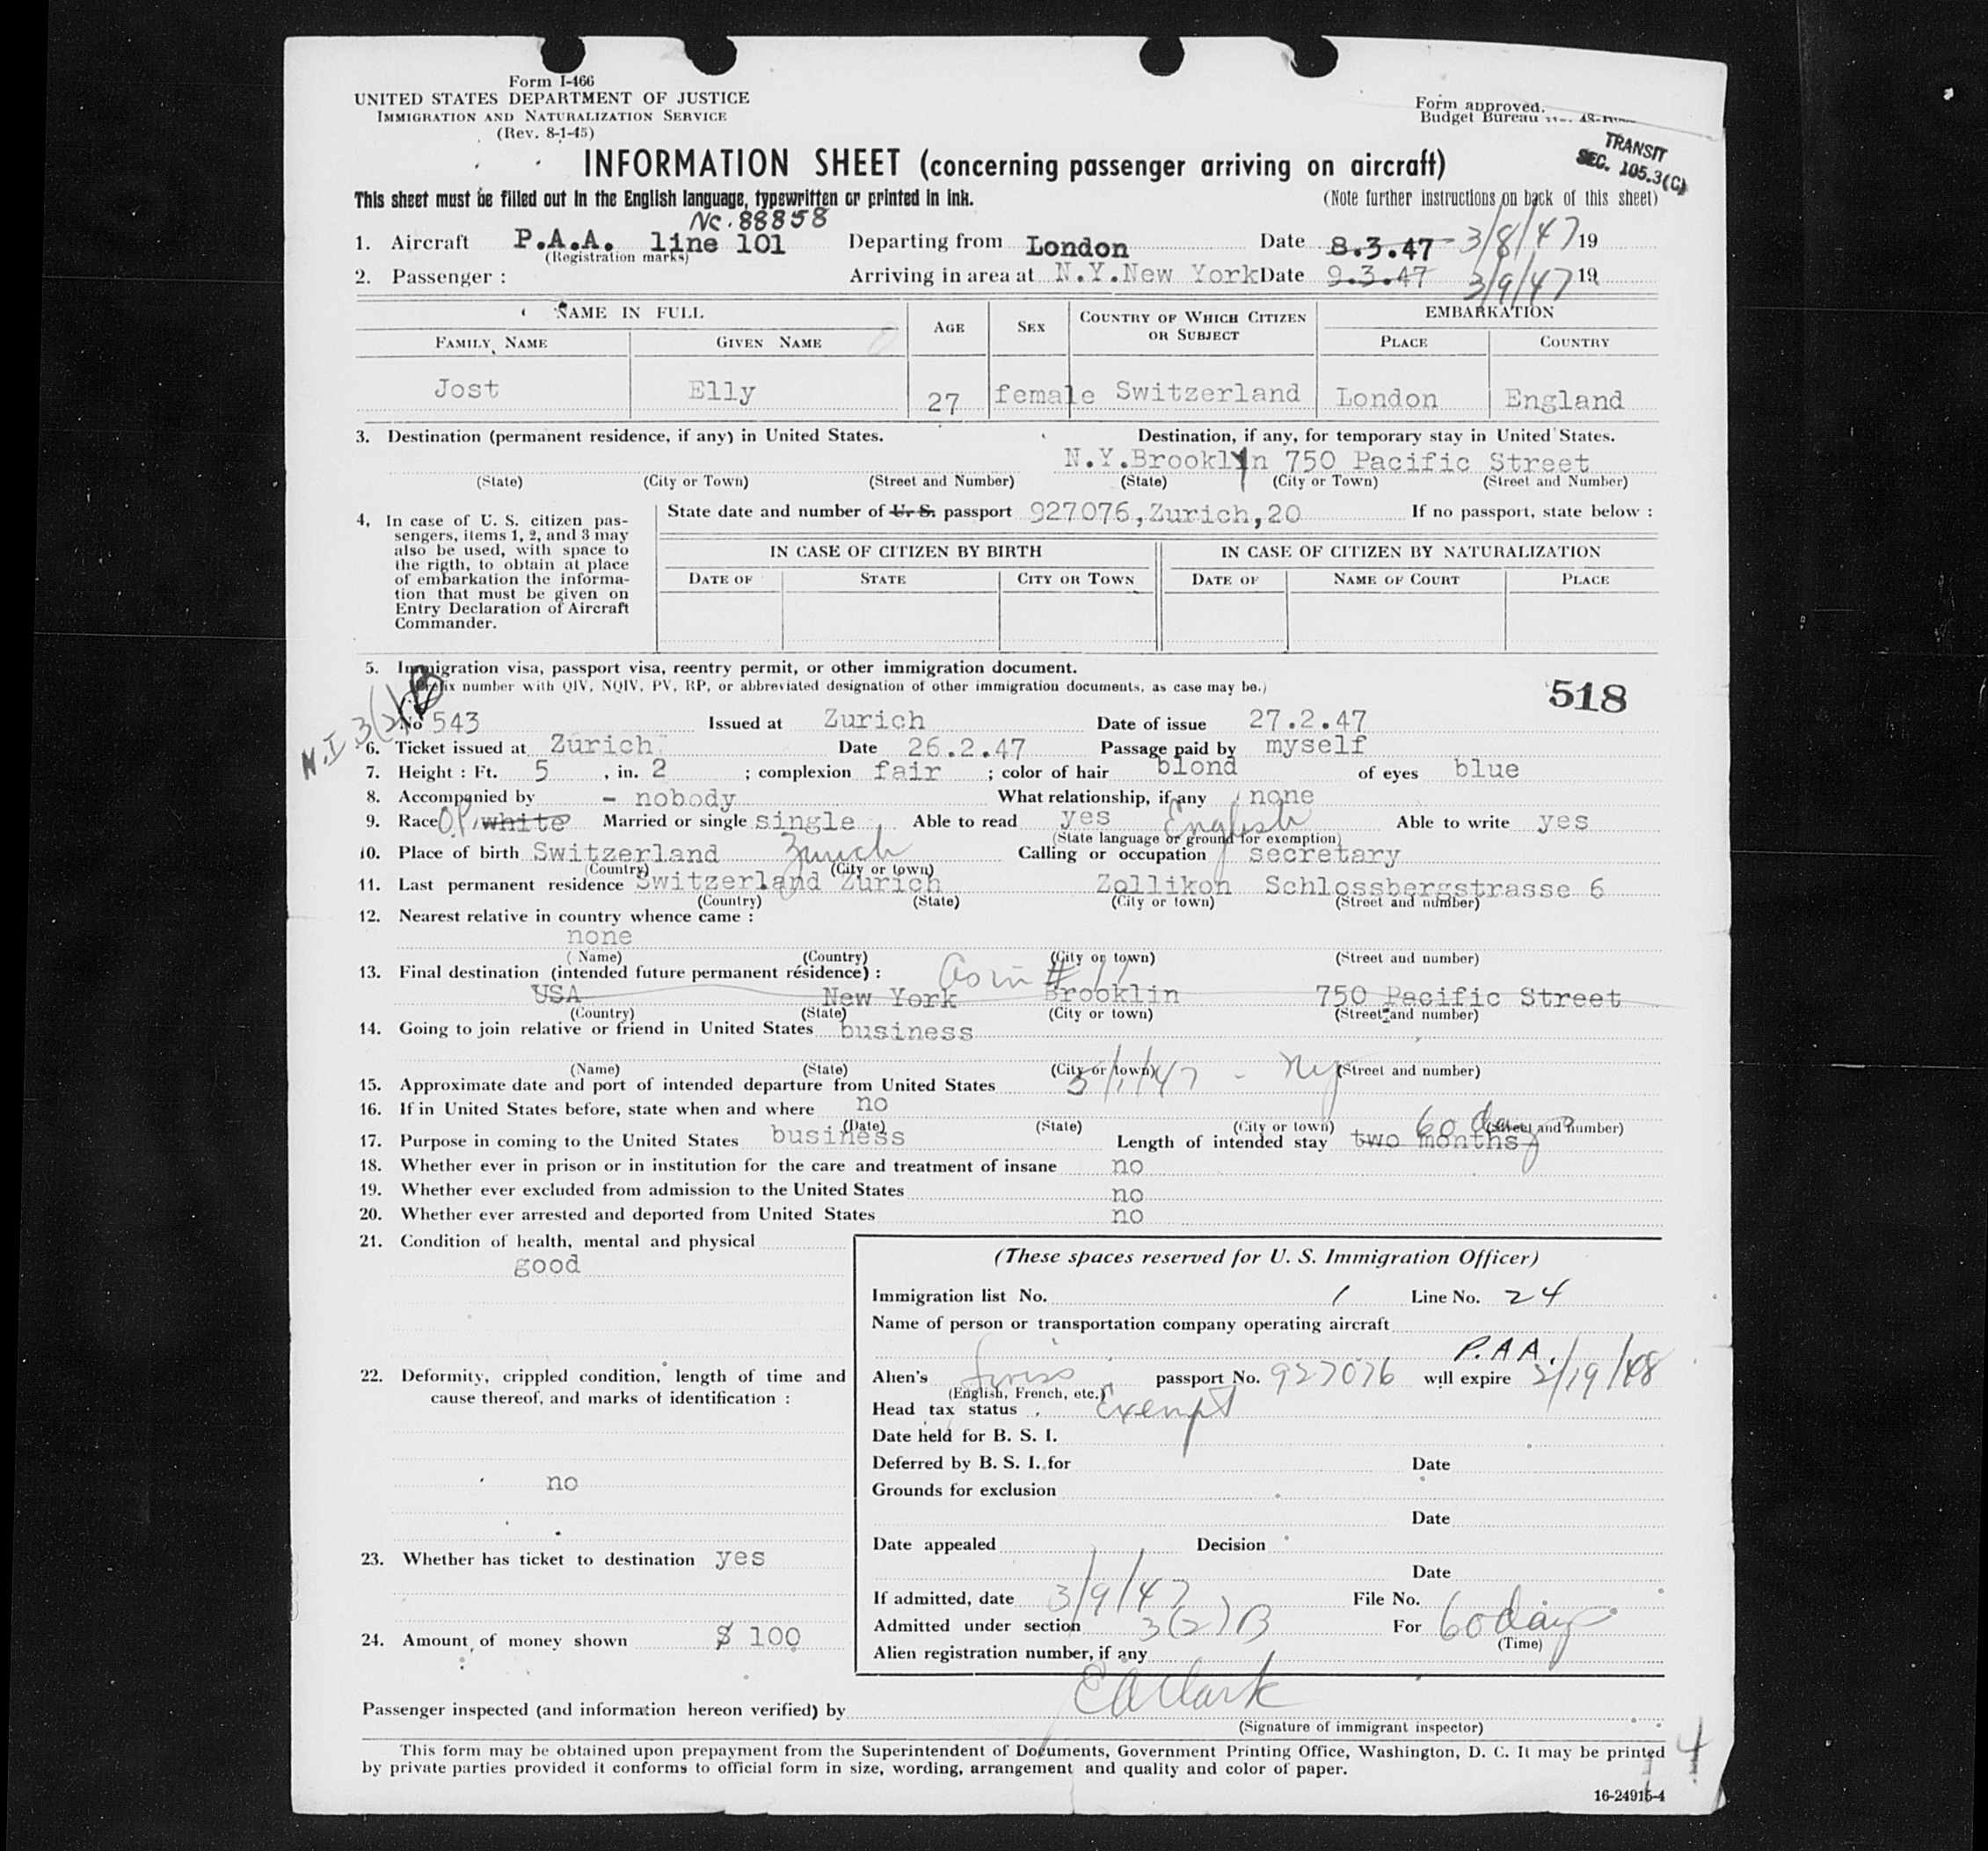 Form I-466
UNITED STATES DEPARTMENT OF JUSTICE
IMMIGRATION AND NATURALIZATION SERVICE
(Rev. 8-1-45)
Form approved.
Budget Bureau
TRANSIT
SEC. 105.3(C)
INFORMATION SHEET (concerning passenger arriving on aircraft)
This sheet must be filled out in the English language, typewritten or printed in ink.
(Note further instructions on back of this sheet)
NC.88858
1. Aircraft P.A.A. line 101 Departing from London Date 8.3.47 3/8/47 19
(Registration marks)
2. Passenger : Arriving in area at N.Y.New York Date 9.3.47 3/9/47 19
NAME IN FULL AGE SEX COUNTRY OF WHICH CITIZEN OR SUBJECT EMBARKATION
FAMILY NAME GIVEN NAME PLACE COUNTRY
Jost Elly 27 female Switzerland London England
3. Destination (permanent residence, if any) in United States. Destination, if any, for temporary stay in United States.
N.Y.Brooklyn 750 Pacific Street
(State) (City or Town) (Street and Number) (State) (City or Town) (Street and Number)
4. In case of U. S. citizen pas-
sengers, items 1, 2, and 3 may
also be used, with space to
the rigth, to obtain at place
of embarkation the informa-
tion that must be given on
Entry Declaration of Aircraft
Commander.
State date and number of U. S. passport 927076,Zurich,20 If no passport, state below :
IN CASE OF CITIZEN BY BIRTH IN CASE OF CITIZEN BY NATURALIZATION
DATE OF STATE CITY OR TOWN DATE OF NAME OF COURT PLACE
5. Immigration visa, passport visa, reentry permit, or other immigration document.
Prefix number with QIV, NQIV, PV, RP, or abbreviated designation of other immigration documents, as case may be.)
518
N.I 3(2)B
No 543 Issued at Zurich Date of issue 27.2.47
6. Ticket issued at Zurich Date 26.2.47 Passage paid by myself
7. Height : Ft. 5 , in. 2 ; complexion fair ; color of hair blond of eyes blue
8. Accompanied by - nobody What relationship, if any none
9. Race white Married or single single Able to read yes English Able to write yes
(State language or ground for exemption)
10. Place of birth Switzerland Zurich Calling or occupation secretary
(Country) (City or town)
11. Last permanent residence Switzerland Zurich Zollikon Schlossbergstrasse 6
(Country) (State) (City or town) (Street and number)
12. Nearest relative in country whence came :
none
(Name) (Country) (City or town) (Street and number)
13. Final destination (intended future permanent résidence) : as in # 11
USA New York Brooklin 750 Pacific Street
(Country) (State) (City or town) (Street and number)
14. Going to join relative or friend in United States business
(Name) (State) (City or town) (Street and number)
15. Approximate date and port of intended departure from United States 5/1/47 - NY
16. If in United States before, state when and where no
(Date) (State) (City or town) (Street and number)
60 days
17. Purpose in coming to the United States business Length of intended stay two months
18. Whether ever in prison or in institution for the care and treatment of insane no
19. Whether ever excluded from admission to the United States no
20. Whether ever arrested and deported from United States no
21. Condition of health, mental and physical
good
22. Deformity, crippled condition, length of time and
cause thereof, and marks of identification :
no
23. Whether has ticket to destination yes
24. Amount of money shown $ 100
(These spaces reserved for U. S. Immigration Officer)
Immigration list No. 1 Line No. 24
Name of person or transportation company operating aircraft
P.A.A.
Alien's Swiss passport No. 927076 will expire 2/19/48
(English, French, etc.)
Head tax status Exempt
Date held for B. S. I.
Deferred by B. S. I. for Date
Grounds for exclusion
Date
Date appealed Decision
Date
If admitted, date 3/9/47 File No.
Admitted under section 3(2)B For 60 days
(Time)
Alien registration number, if any
Passenger inspected (and information hereon verified) by EA Clark
(Signature of immigrant inspector)
This form may be obtained upon prepayment from the Superintendent of Documents, Government Printing Office, Washington, D. C. It may be printed
by private parties provided it conforms to official form in size, wording, arrangement and quality and color of paper.
16-24915-4